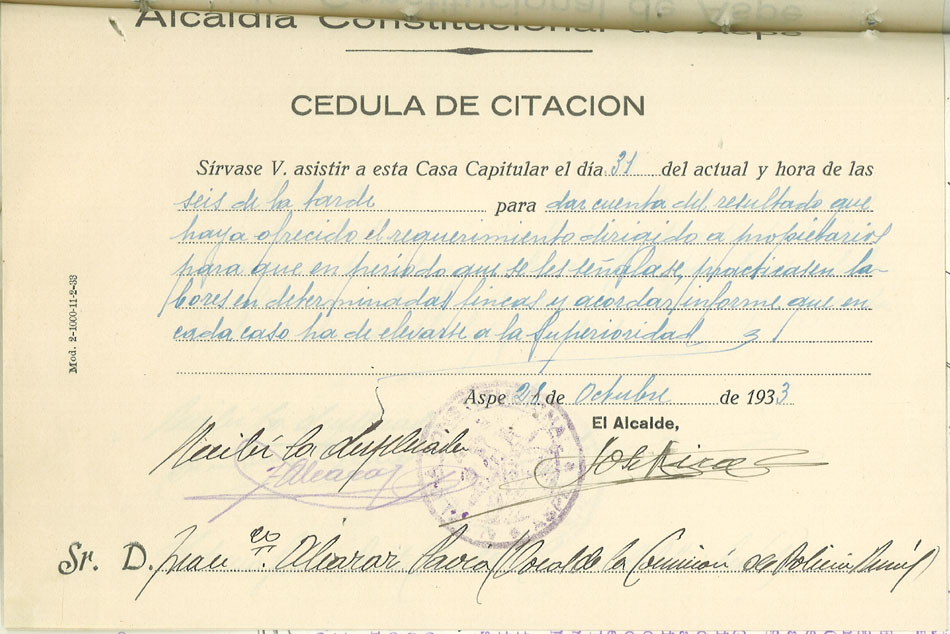 Alcaldía Constitucional de Aspe
CEDULA DE CITACION
Sírvase V. asistir a esta Casa Capitular el día 31 del actual y hora de las
seis de la tarde para dar cuenta del resultado que
haya ofrecido el requerimiento dirigido a propietarios
para que en periodo que se les señalase, practicasen la-
bores en determinadas fincas y acordar informe que en
cada caso ha de elevarse a la Superioridad
Mod. 2-1000-11-2-33
Aspe 28 de Octubre de 1933
El Alcalde,
Recibí la duplicada
J Alcaraz
Sr. D. Franco. Alcaraz Pavía Vocal de la Comisión de Policía Rural